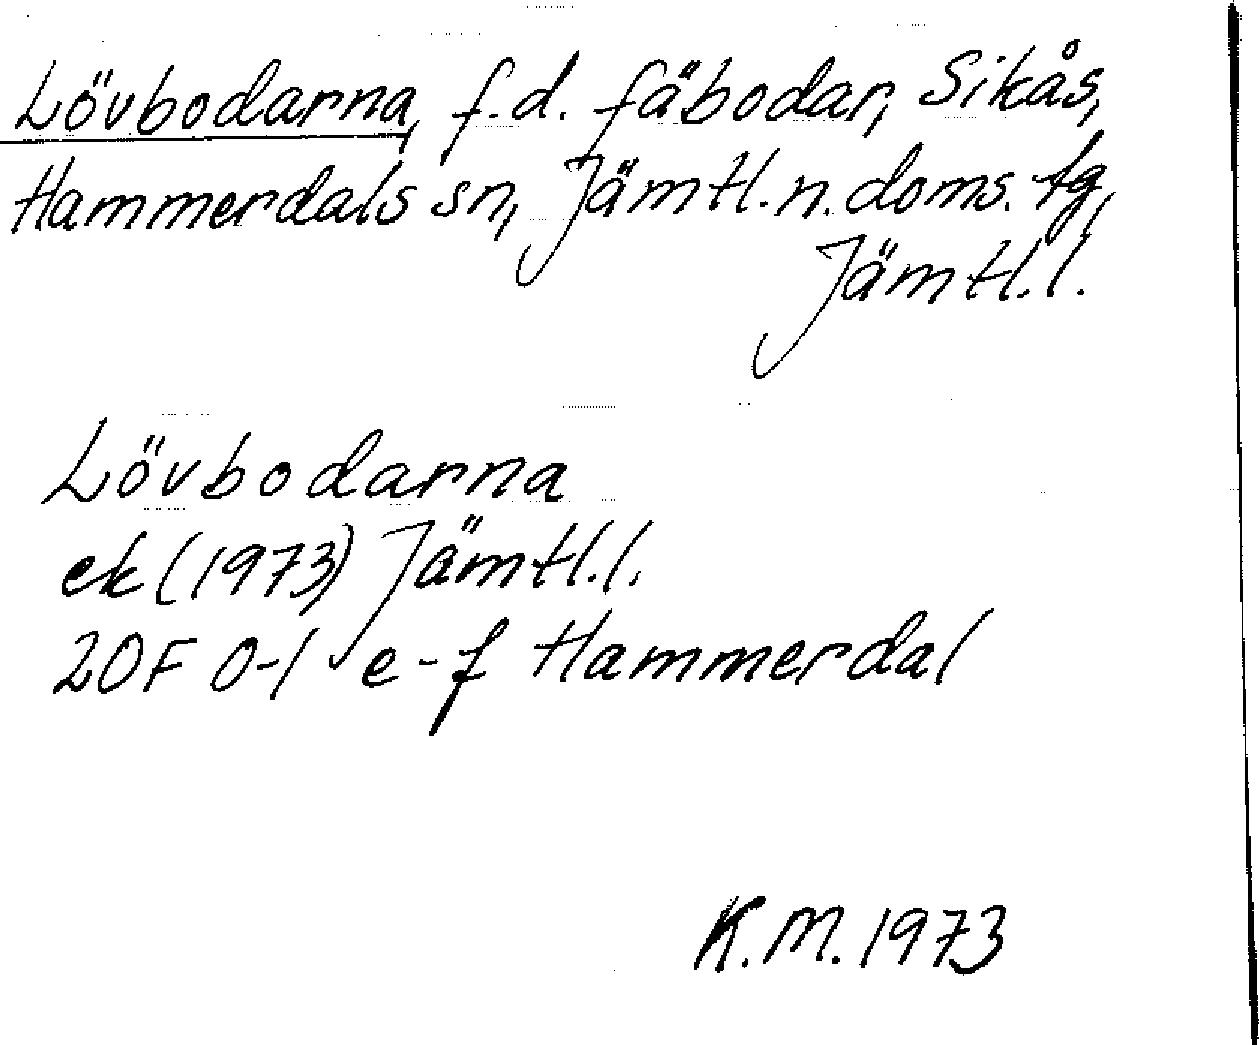 Lövbodarna, f.d. fäbodar, Sikås,
Hammerdals sn, Jämtl.n.doms.tg,
Jämtl.l.
Lövbodarna
ek (1973) Jämtl.l.
20F 0-1 e-f Hammerdal
K.M. 1973